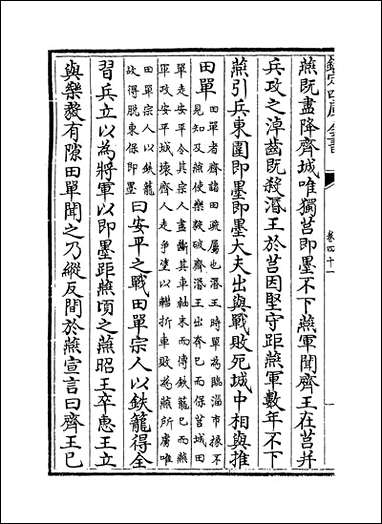 欽定四庫全書
卷四十一
燕既盡降齊城唯獨莒即墨不下燕軍聞齊王在莒并
兵攻之淖齒既殺湣王於莒因堅守距燕軍數年不下
燕引兵東圍即墨即墨大夫出與戰敗死城中相與推
田單
田單者齊諸田疏屬也湣王時單為臨淄市掾不
見知及燕使樂毅破齊湣王出奔已而保莒城田
單走安平令其宗人盡斷其車軸末而傅鉄籠已而燕
軍攻安平城壊齊人走爭塗以轊折車敗為燕所虜唯
田單宗人以鉄籠
故得脱東保即墨
曰安平之戰田單宗人以鉄籠得全
習兵立以為將軍以即墨距燕頃之燕昭王卒惠王立
與樂毅有隙田單聞之乃縱反間於燕宣言曰齊王已